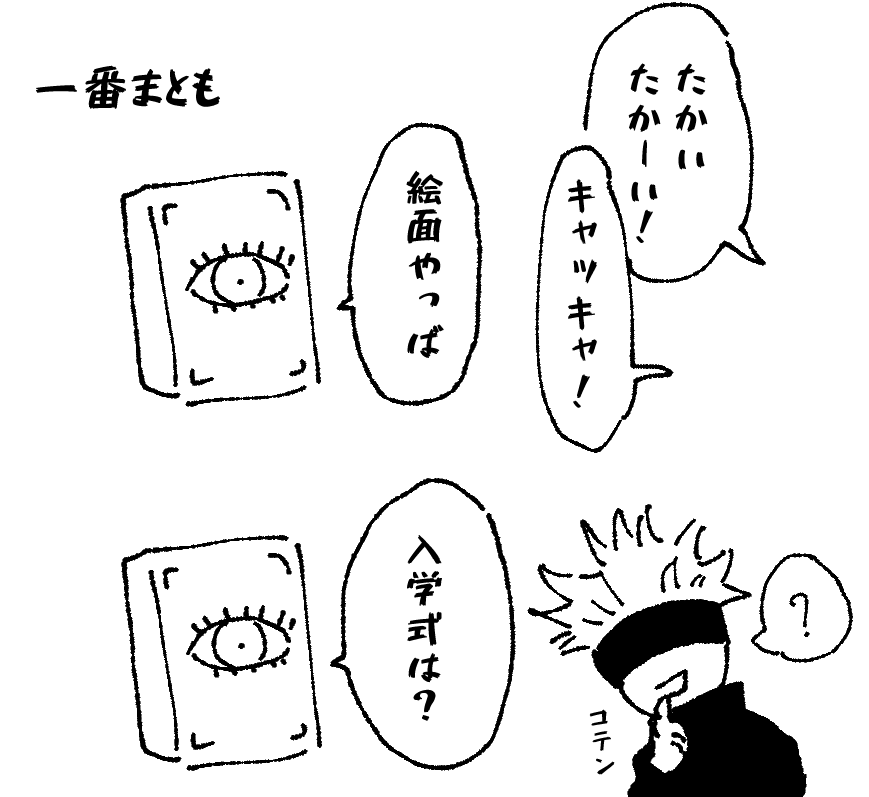 一番まとも
たかい
たかーい！
キャッキャ！
絵面やっば
入学式は？
？
コテン